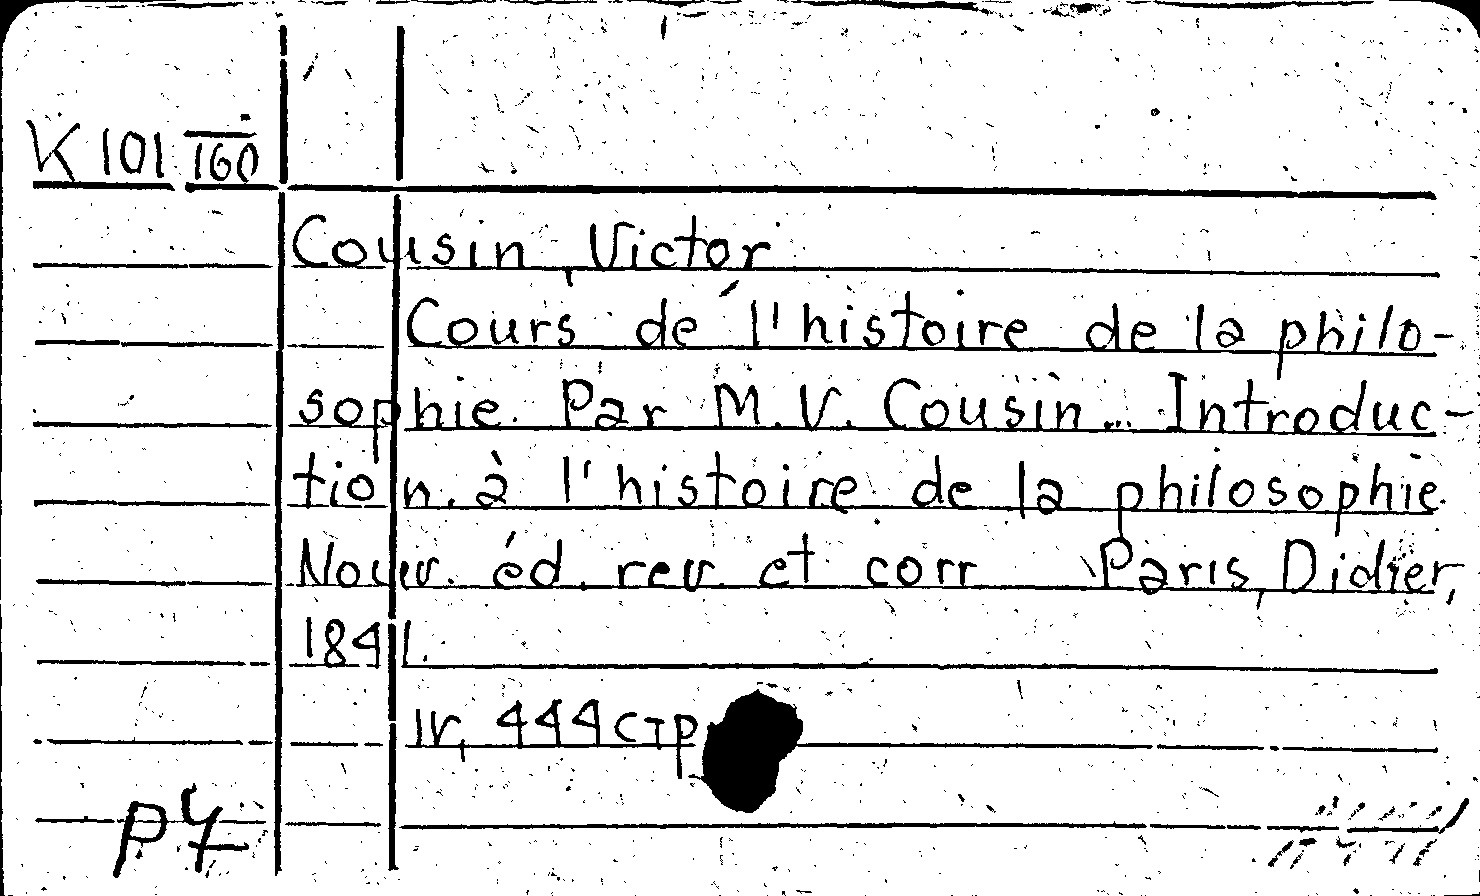 K 101 160
Cousin, Victor
Cours de l'histoire de la philo-
sophie. Par M. V. Cousin... Introduc-
tion à l'histoire de la philosophie.
Nouv. éd. rev. et corr Paris, Didier,
1841.
IV, 444 стр